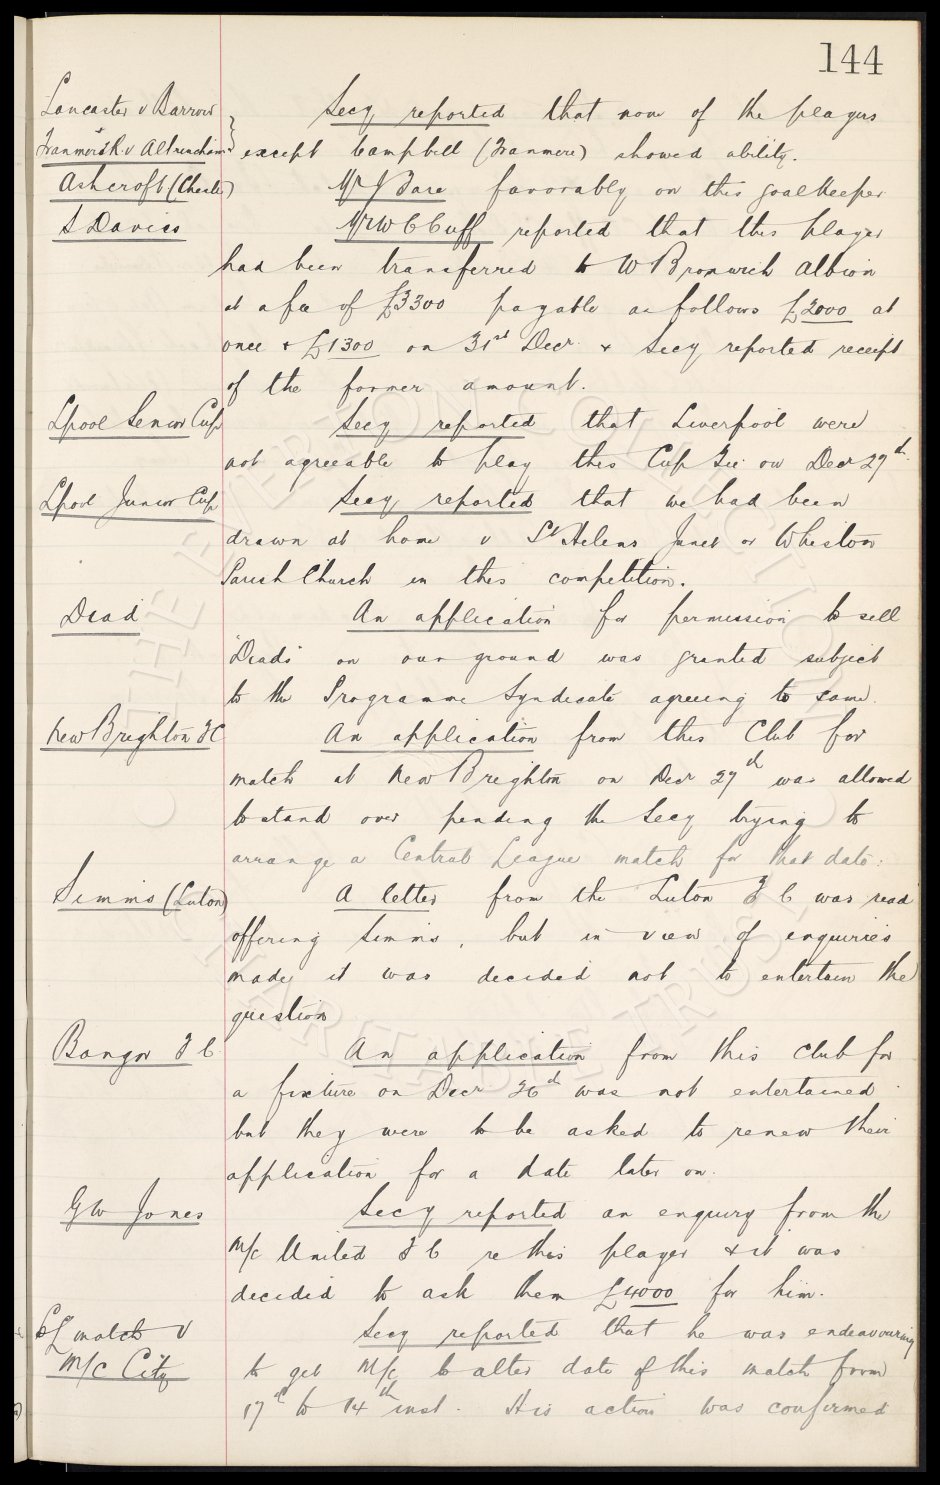 144
Lancaster v Barrow
Secy reported that none of the players
Tranmere R v Altrincham
except Campbell (Tranmere) showed ability.
Ashcroft (Chester)
Mr J Bare favorably on this goalkeeper
S Davies
Mr W C Cuff reported that this player
had been transferred to W Bromwich Albion
at a fee of £3300 payable as follows £2000 at
once & £1300 on 31st Decr. & Secy reported receipt
of the former amount.
Lpool Senior Cup
Secy reported that Liverpool were
not agreeable to play this Cup Tie on Decr 27th.
Lpool Junior Cup
Secy reported that we had been
drawn at home v St Helens Junct or Whiston
Parish Church in this competition.
Diad
An application for permission to sell
"Diads" on our ground was granted subject
to the Programme Syndicate agreeing to same.
New Brighton FC
An application from this Club for
match at New Brighton on Decr 27th was allowed
to stand over pending the Secy trying to
arrange a Central League match for that date.
Simms (Luton)
A letter from the Luton F C was read
offering Simms, but in view of enquiries
made it was decided not to entertain the
question
Bangor F C.
An application from this Club for
a fixture on Decr 26th was not entertained
but they were to be asked to renew their
application for a date later on.
G W Jones
Secy reported an enquiry from the
M/c United F C re this player & it was
decided to ask them £4000 for him.
CL match v
Secy reported that he was endeavouring
M/c City
to get M/c to alter date of this match from
17th to 14th inst. His action was confirmed
THE EVERTON COLLECTION
CHARITABLE TRUST